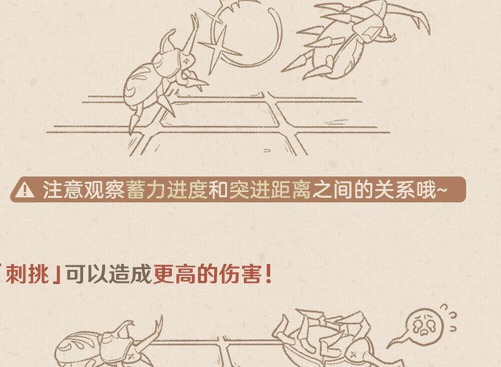 注意观察蓄力进度和突进距离之间的关系哦~
「刺挑」可以造成更高的伤害!